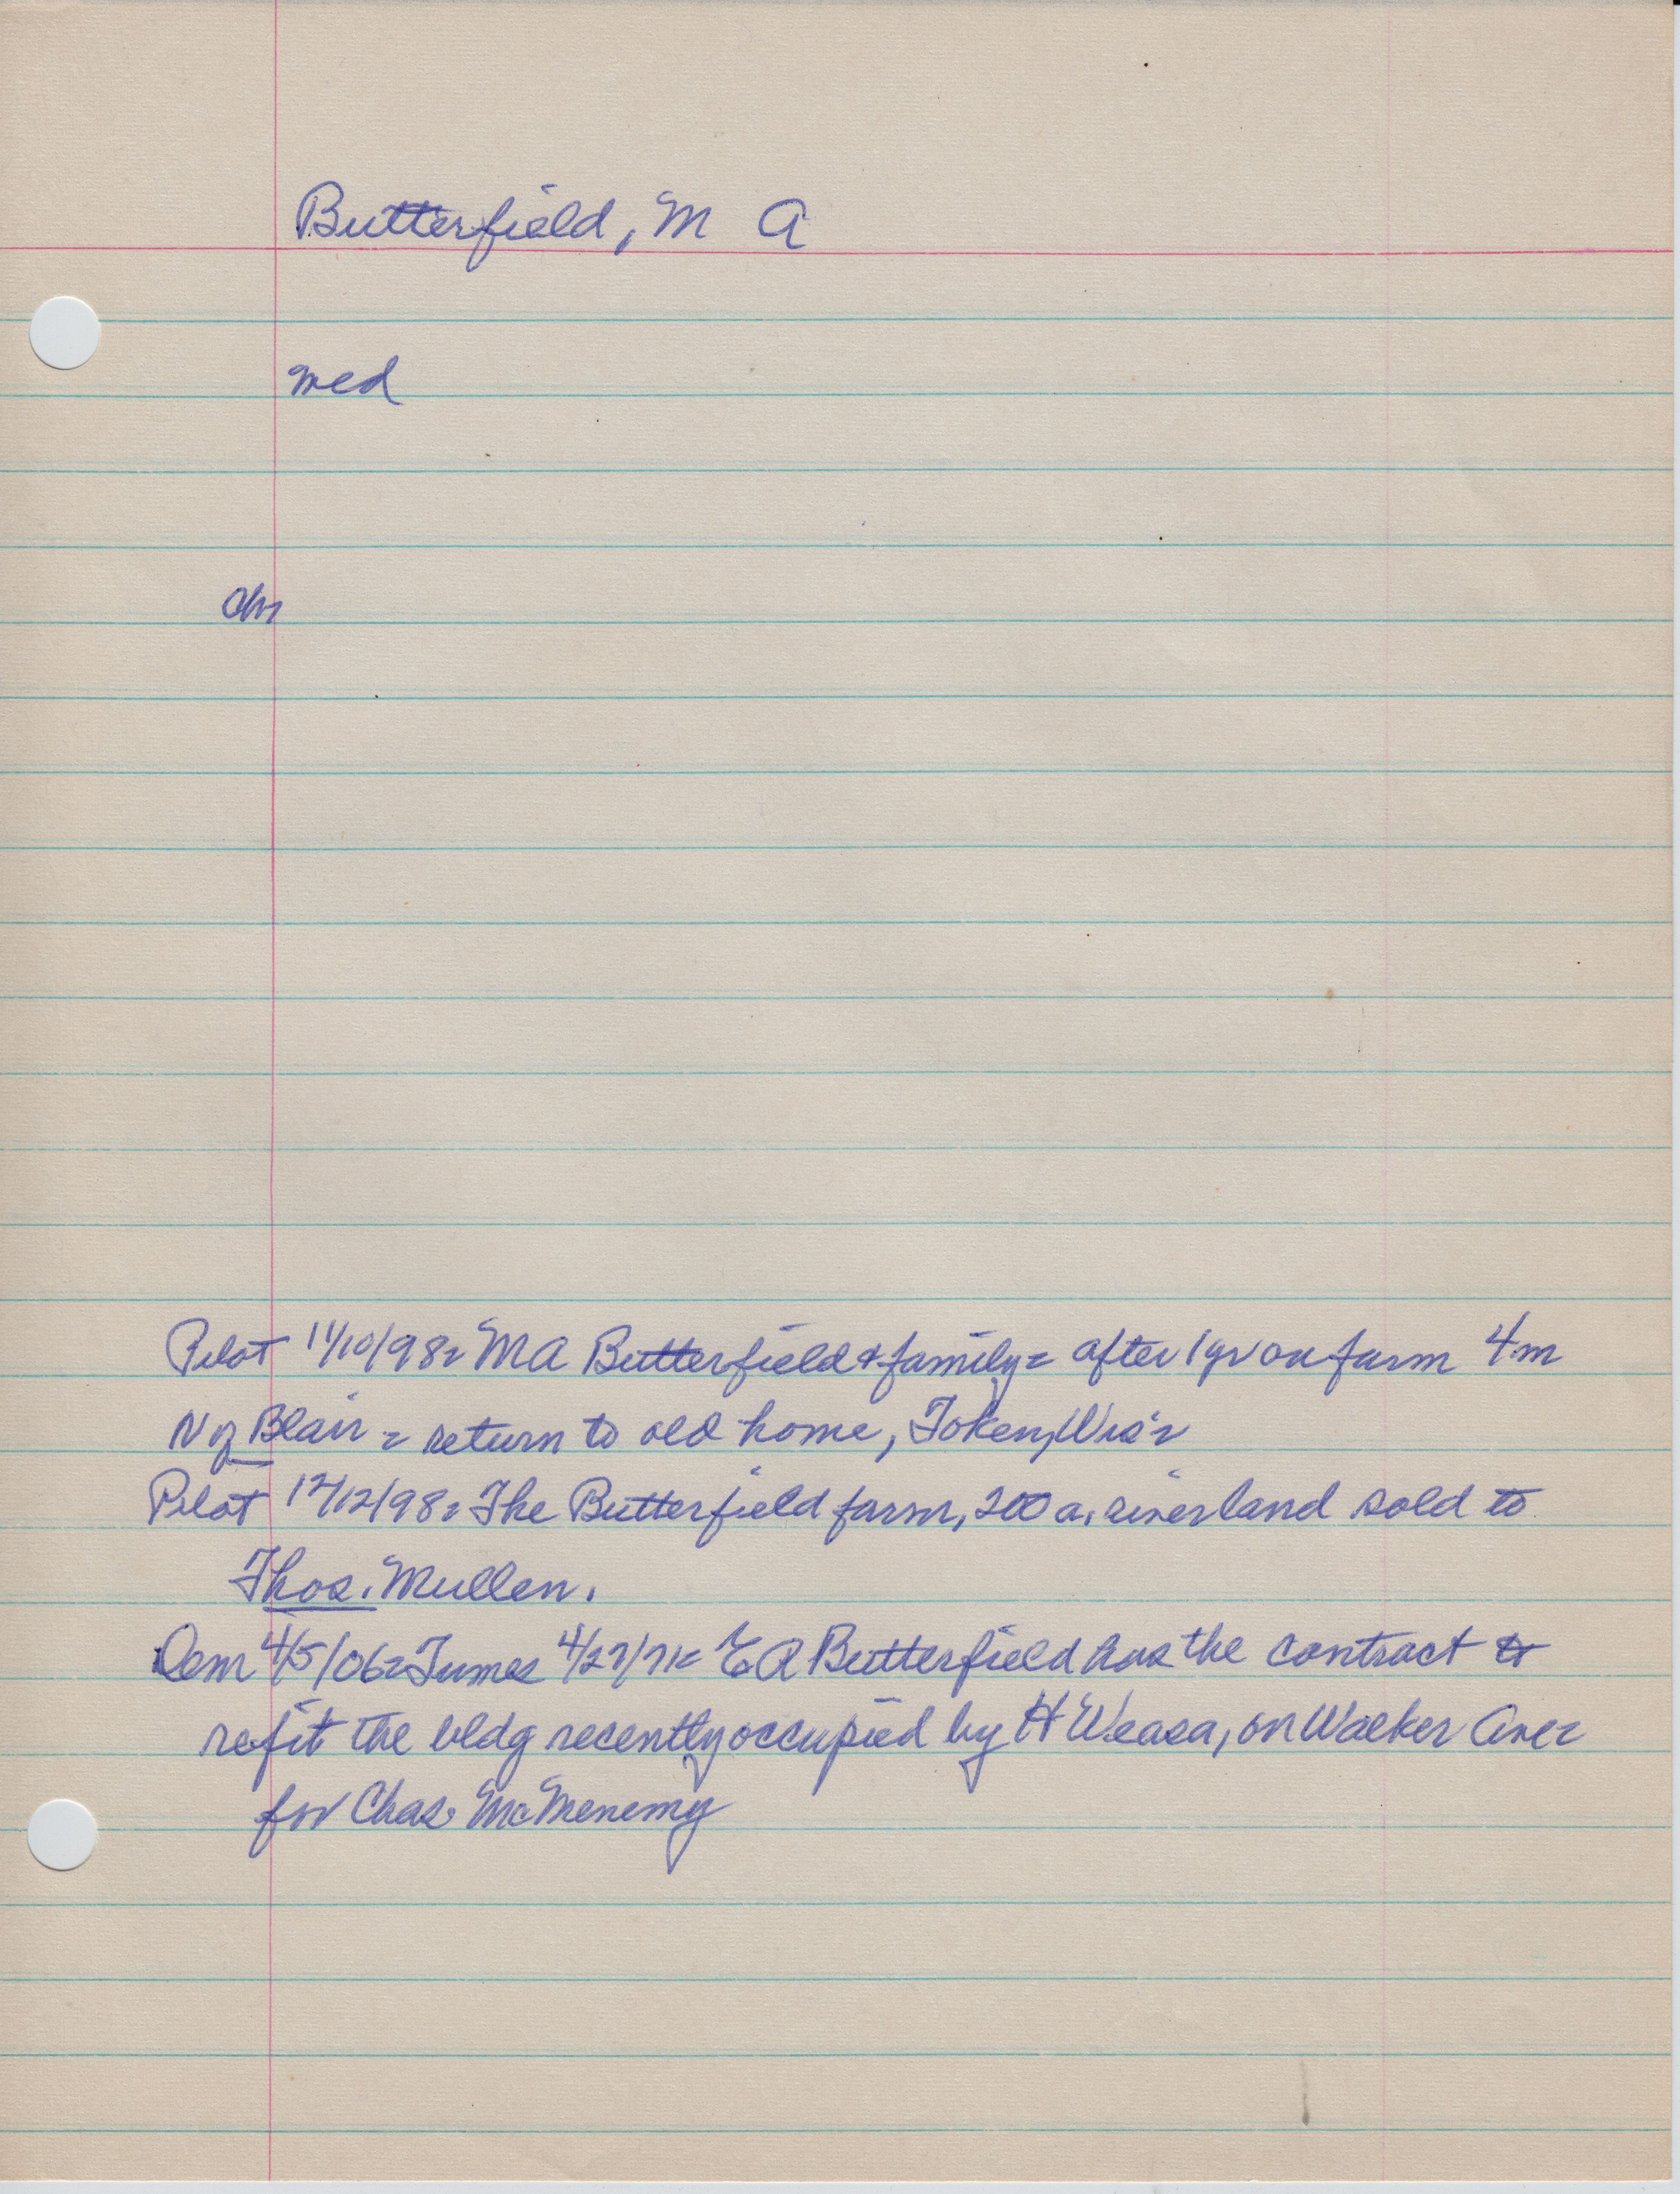 Butterfield, M A
med
Chr
Pilot 11/10/98= MA Butterfield & family= after 1 yr on farm 4 m
N of Blair = return to old home, Token, Wis=
Pilot 12/12/98= The Butterfield farm, 200 a. river land sold to
Thos. Mullen.
Dem 4/5/06= Times 4/27/71= EA Butterfield has the contract to
refit the bldg recently occupied by H Weasa, on Walker Ave=
for Chas. McMenemy